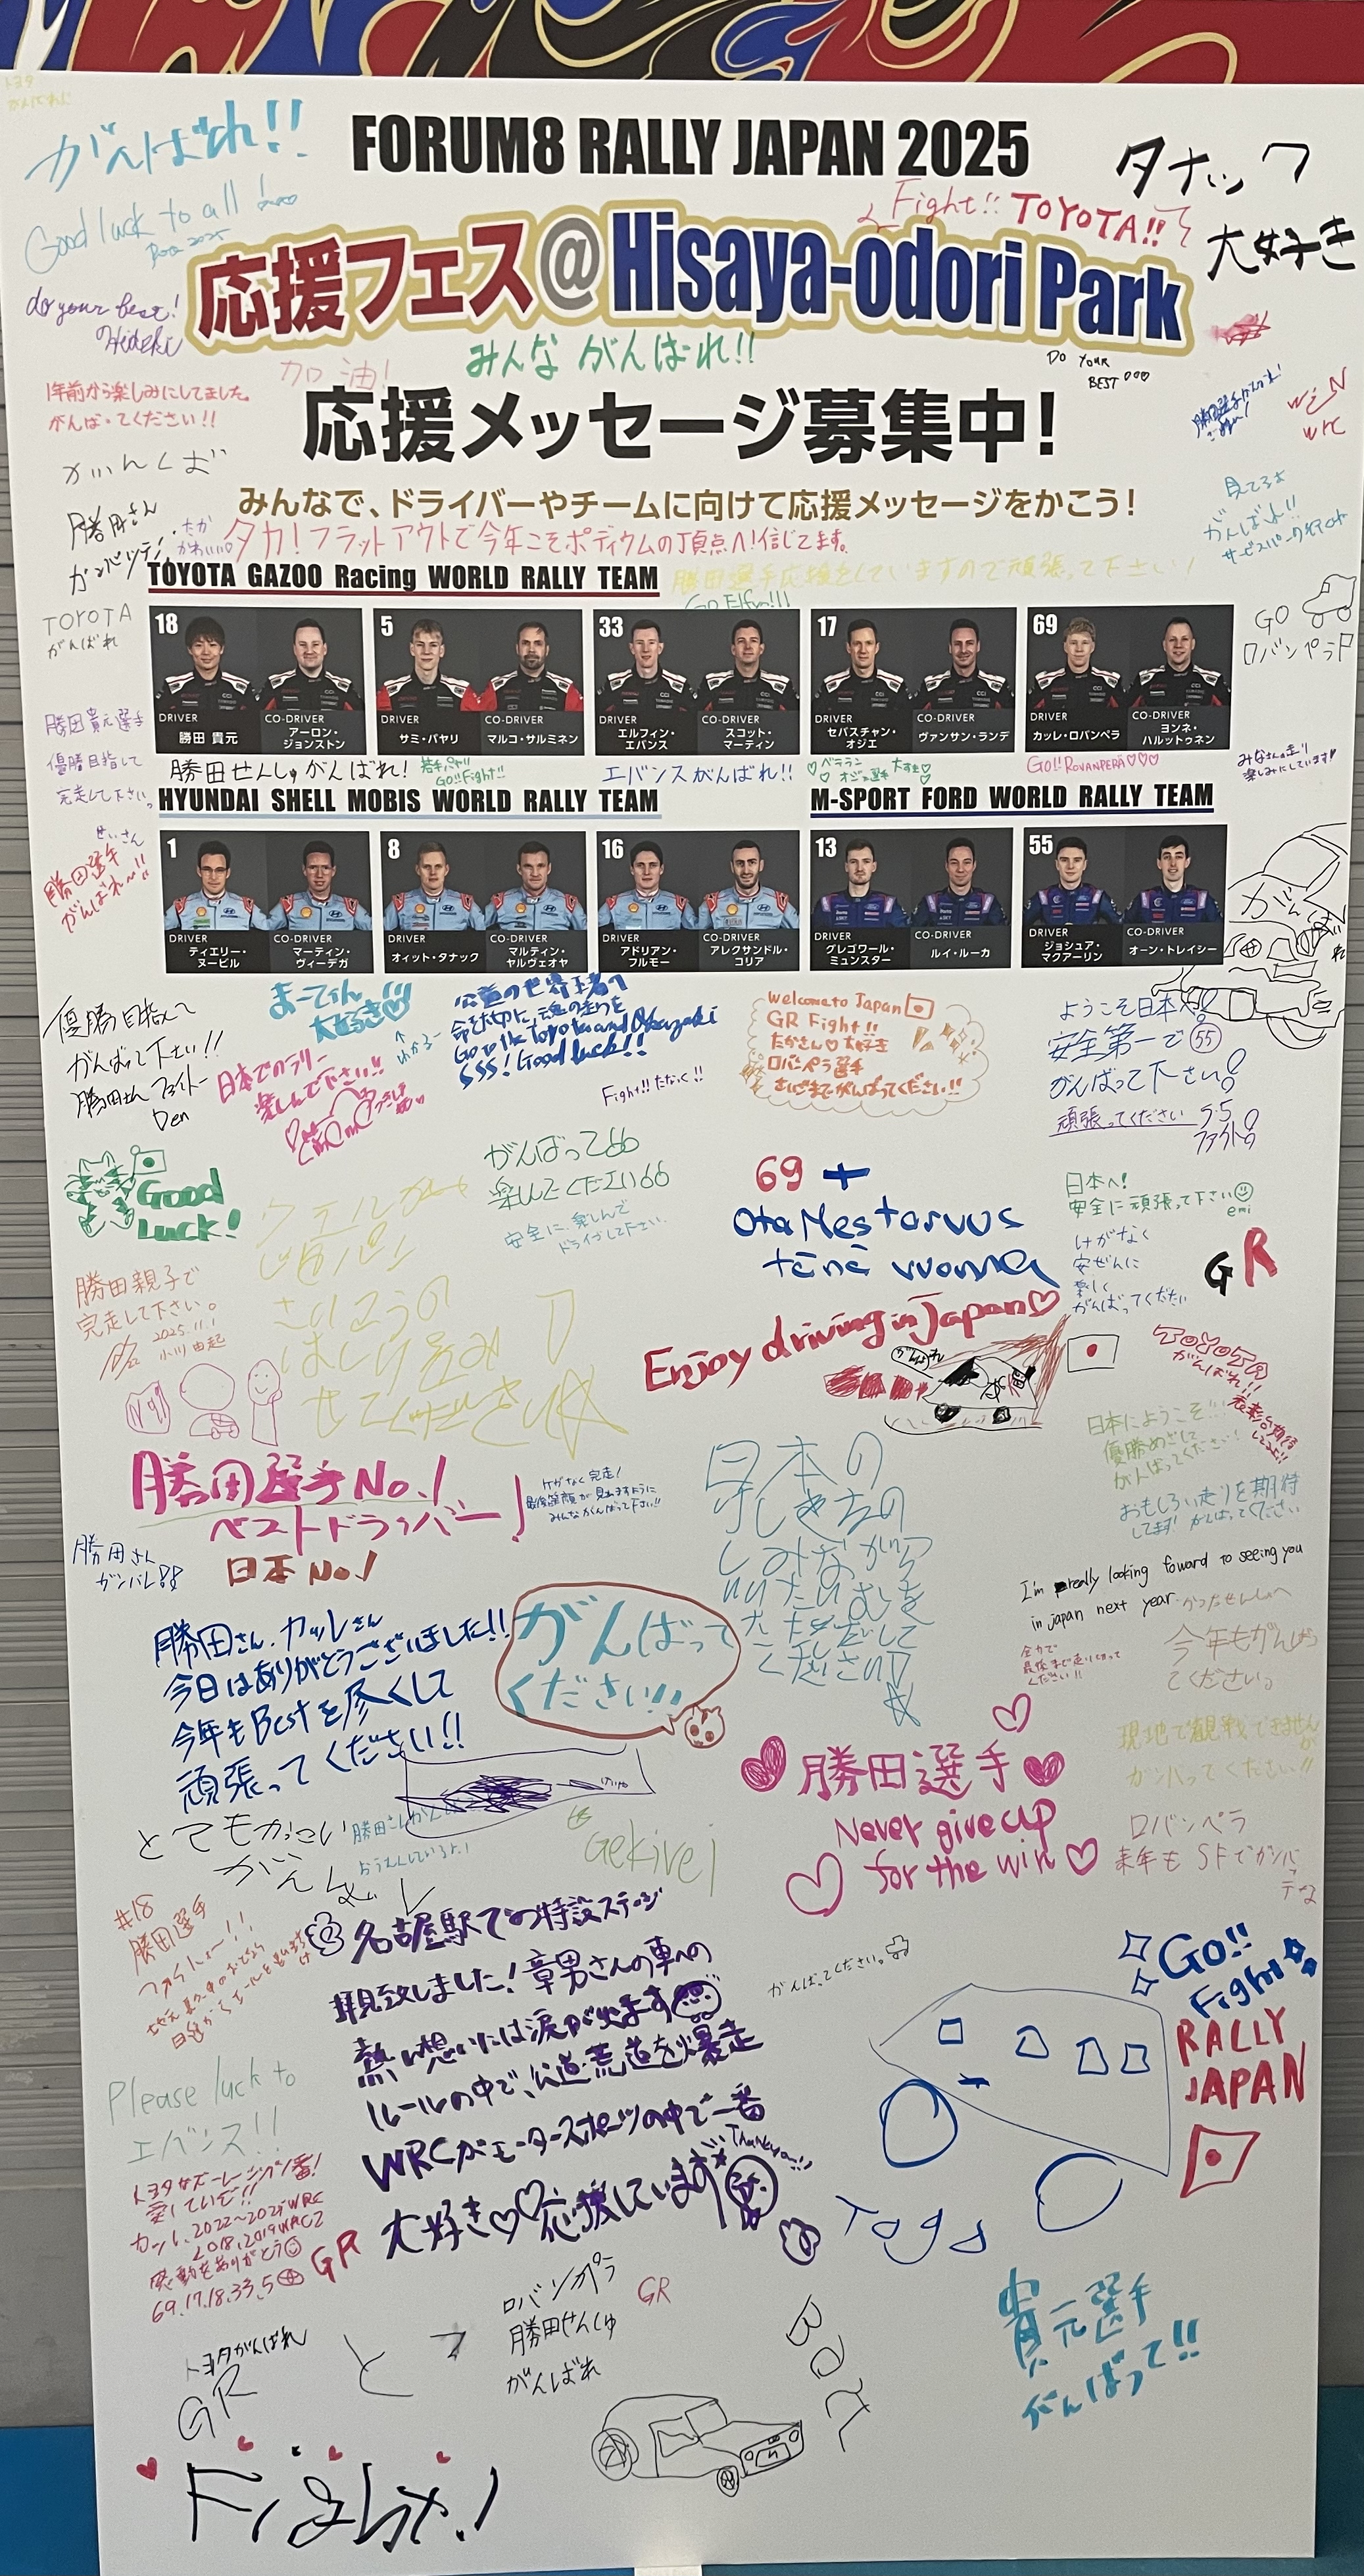 がんばれ!!
FORUM8 RALLY JAPAN 2025
タナック
大好き
Good luck to all
Fight!! TOYOTA!!
応援フェス@Hisaya-odori Park
do your best!
Hideki
みんな がんばれ!!
DO YOUR
BEST
加油!
1年前から楽しみにしてました。
がんばってください!!
応援メッセージ募集中!
WIN
WRC
みんなで、ドライバーやチームに向けて応援メッセージをかこう!
勝田さん
たか
かわいい
タカ!フラットアウトで今年こそポディウムの頂点へ!信じてます。
見てるよ
がんばれ!!
TOYOTA GAZOO Racing WORLD RALLY TEAM
勝田選手応援をしていますので頑張って下さい!
Go Elfyn!!!
TOYOTA
がんばれ
GO
ロバンペラ
18
DRIVER
勝田 貴元
CO-DRIVER
アーロン・
ジョンストン
5
DRIVER
サミ・パヤリ
CO-DRIVER
マルコ・サルミネン
33
DRIVER
エルフィン・
エバンス
CO-DRIVER
スコット・
マーティン
17
DRIVER
セバスチャン・
オジエ
CO-DRIVER
ヴァンサン・ランデ
69
DRIVER
カッレ・ロバンペラ
CO-DRIVER
ヨンネ・
ハルットゥネン
勝田貴元選手
優勝目指して
完走して下さい。
勝田せんしゅがんばれ!
若手パヤリ
GO!!Fight!!
エバンスがんばれ!!
ベテラン
オジェ選手 大好き
GO!!ROVANPERÄ♡♡♡
みなさんの走り
楽しみにしています!
HYUNDAI SHELL MOBIS WORLD RALLY TEAM
M-SPORT FORD WORLD RALLY TEAM
勝田選手
がんばれ〜!!
1
DRIVER
ティエリー・
ヌービル
CO-DRIVER
マーティン・
ヴィーデガ
8
DRIVER
オィット・タナック
CO-DRIVER
マルティン・
ヤルヴェオヤ
16
DRIVER
アドリアン・
フルモー
CO-DRIVER
アレクサンドル・
コリア
13
DRIVER
グレゴワール・
ミュンスター
CO-DRIVER
ルイ・ルーカ
55
DRIVER
ジョシュア・
マクアーリン
CO-DRIVER
オーン・トレイシー
がんばれ
優勝目指して
がんばって下さい!!
勝田さん ファイトー
Den
まーてぃん
大好き♡
↑
わかるー
日本でのラリー
楽しんで下さい!!
Go to the Toyota and Okazaki
SSS! Good luck!!
Fight!! たなっく!!
Welcome to Japan
GR Fight!!
たかさん♡大好き
ロバンペラ選手
さいごまでがんばってください!!
ようこそ日本へ
安全第一で 55
がんばって下さい!
頑張ってください
55
ファイト
Good
Luck!
がんばって
楽しんでください
安全に、楽しんで
ドライブして下さい
69 +
Ota Mestaruus
tänä vuonna
日本へ!
安全に頑張って下さい
emi
けがなく
安ぜんに
楽しく
がんばってください
GR
勝田親子で
完走して下さい。
2025.11.1
小川 由起
Enjoy driving in Japan♡
がんばれ
TOYOTA
がんばれ!!
表彰台期待
してるよ!!
日本にようこそ!!
優勝めざして
がんばってください!
おもしろい走りを期待
してます! がんばってください
勝田選手No.1
ベストドライバー!
日本 No.1
ケガなく完走!
最後笑顔が見れますように
みんながんばって下さい!!
勝田さん
ガンバレ!!
I'm really looking foward to seeing you
in japan next year.
全力で
最後まで走りきって
ください!!
今年もがんばっ
てください。
勝田さん、カッレさん
今日はありがとうございました!!
今年もBestを尽くして
頑張ってください!!
がんばって
ください!!
♡勝田選手♡
Never give up
for the win♡
現地で観戦できませんが
ガンバってください!!
とてもかっこいい
がんばレ
Gekirei
ロバンペラ
来年も SFでガンバッテな
#18
勝田選手
ファイトー!!
名古屋駅での特設ステージ
拝見致しました!章男さんの車への
熱い想いには涙が出ます
ルールの中で、公道・荒道を爆走
WRCがモータースポーツの中で一番
大好き♡♡応援しています
Thank you!!
がんばってください。
Go!!
Fight
RALLY
JAPAN
Please luck to
エバンス!!
トヨタガズーレーシング1番!
愛しているぞ!!
カッレ、2022〜2025WRC
2018,2019WRC2
感動をありがとう
69.17.18.33.5
GR
トヨタがんばれ
GR
ロバンペラ
勝田せんしゅ
がんばれ
GR
貴元選手
がんばって!!
Fight!